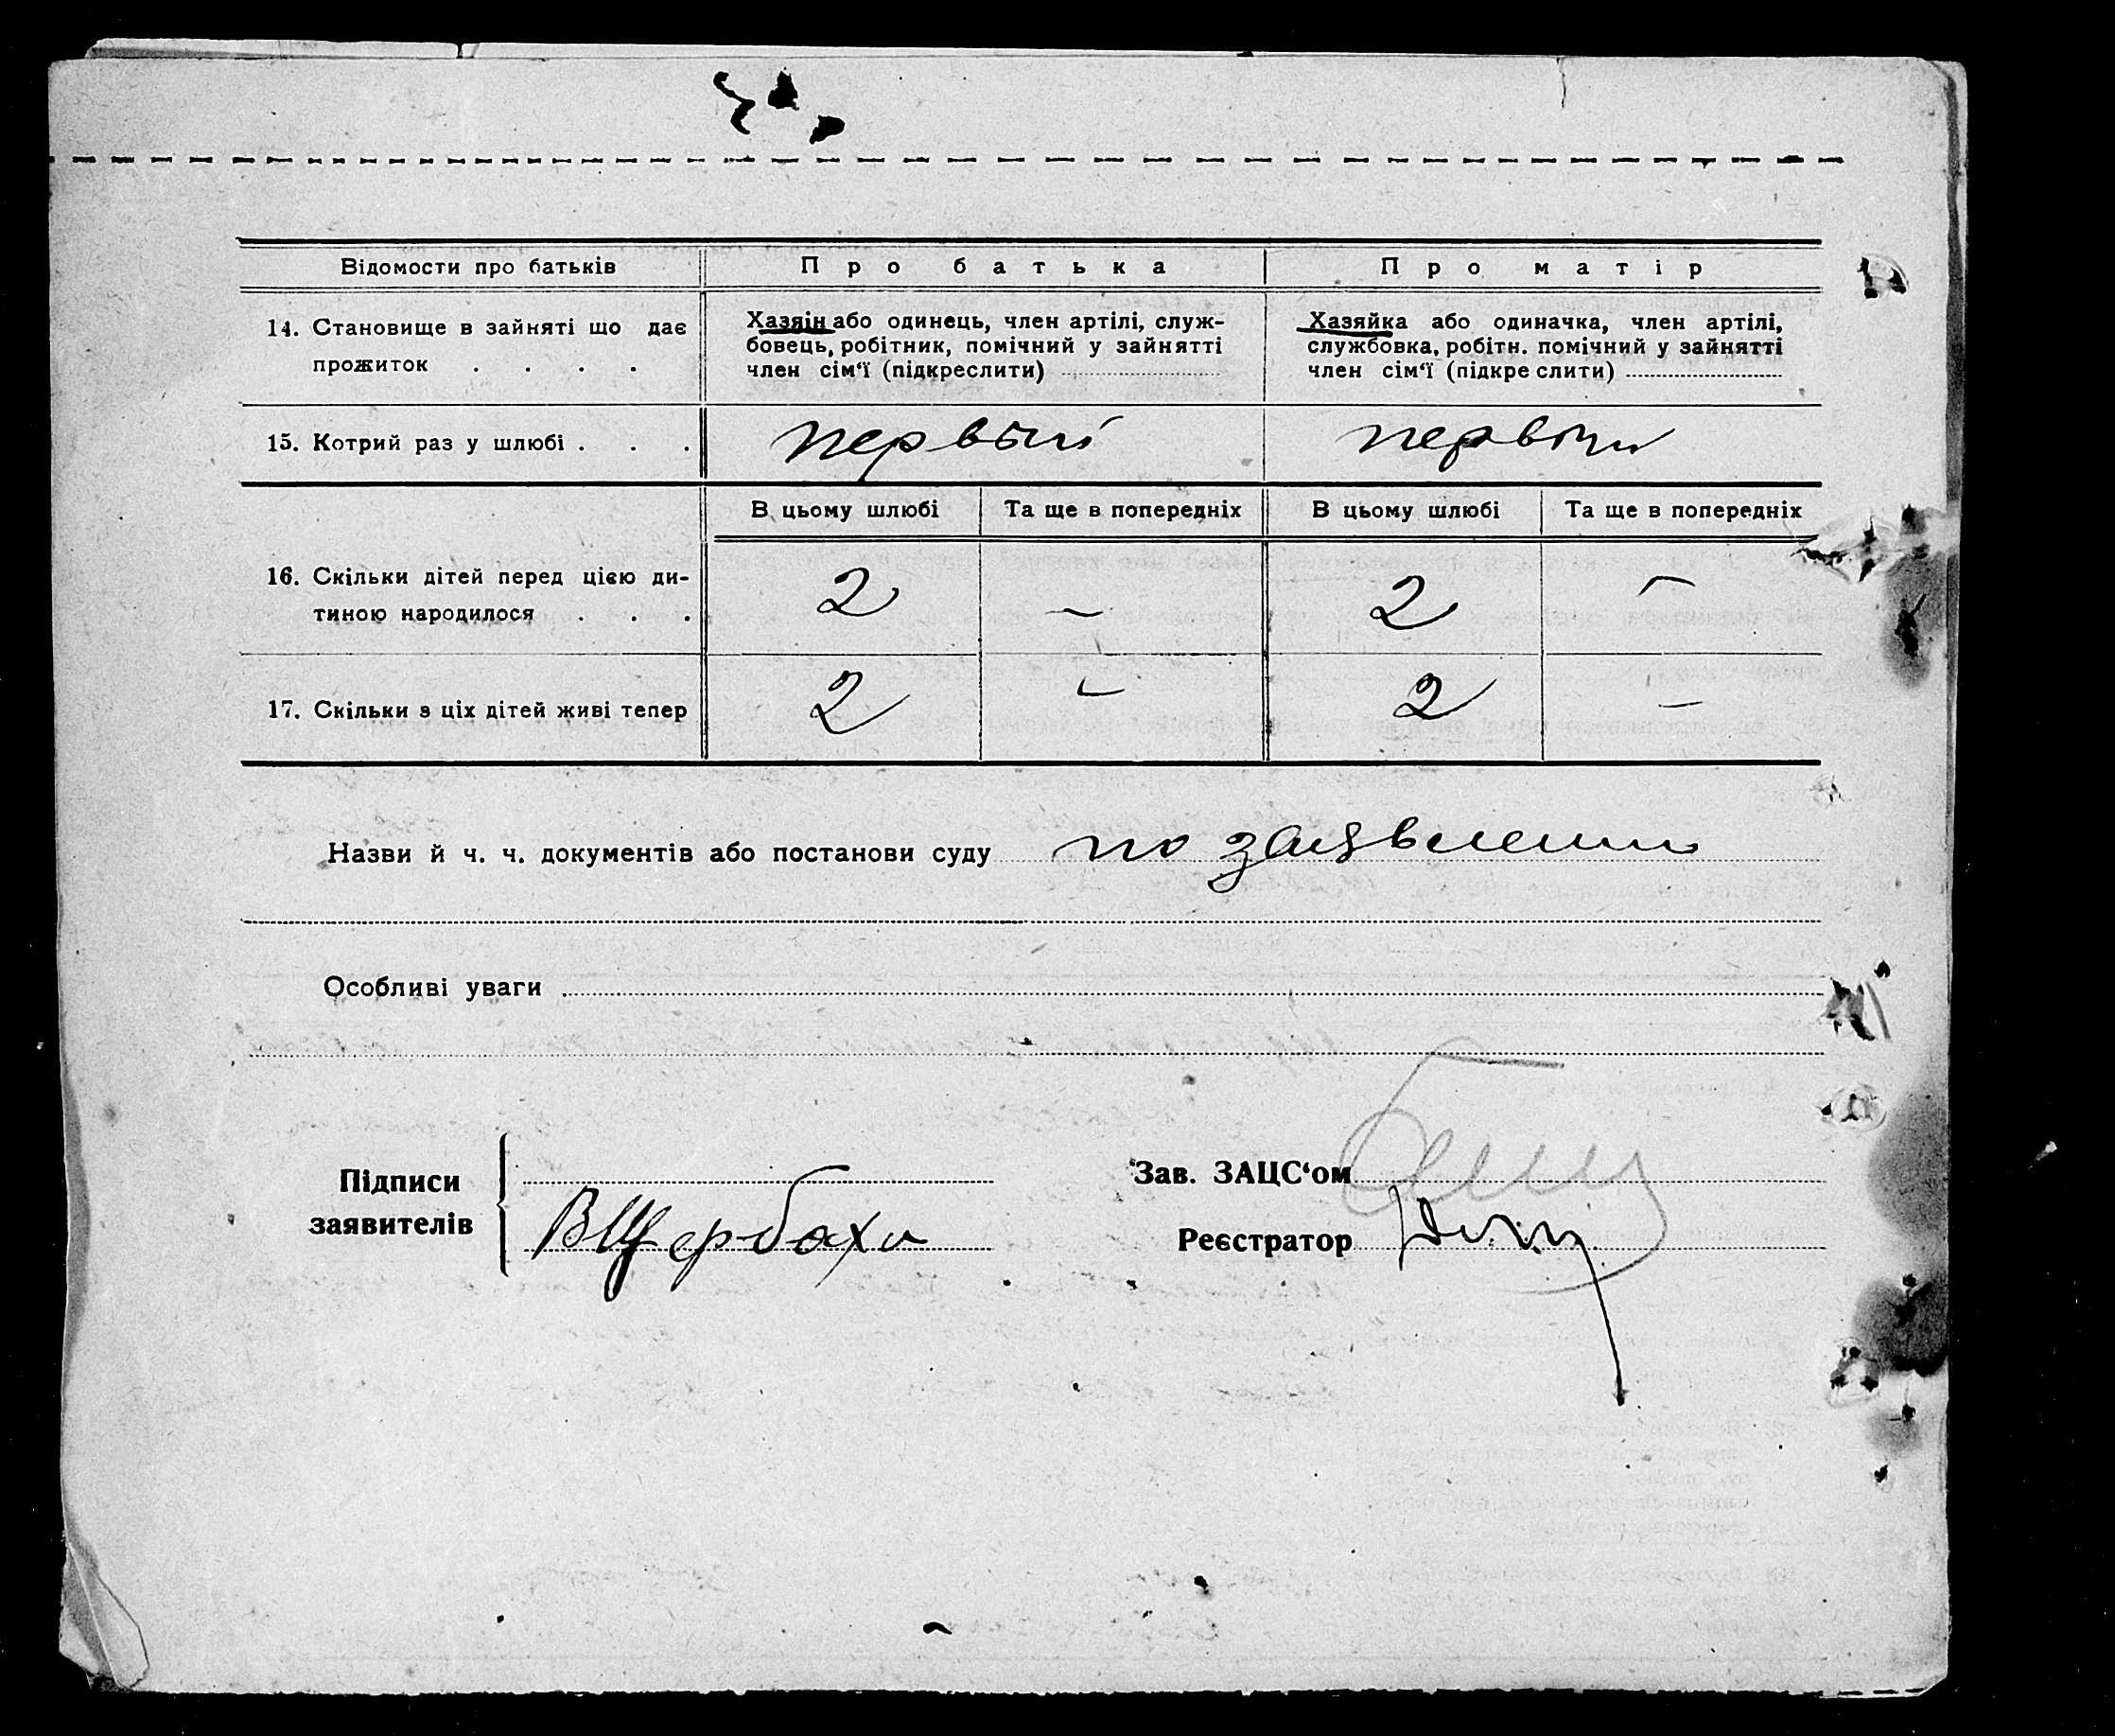 Відомости про батьків Про батька Про матір
14. Становище в зайняті що дає прожиток . . . .
Хазяін або одинець, член артілі, служ-
бовець, робітник, помічний у зайнятті
член сім‘ї (підкреслити)
Хазяйка або одиначка, член артілі,
службовка, робітн. помічний у зайнятті
член сім‘ї (підкреслити)
15. Котрий раз у шлюбі . . . первый первый
В цьому шлюбі Та ще в попередніх В цьому шлюбі Та ще в попередніх
16. Скільки дітей перед цією ди-
тиною народилося . . . 2 – 2 –
17. Скільки з ціх дітей живі тепер 2 – 2 –
Назви й ч. ч. документів або постанови суду по заявлению
Особливі уваги
Підписи
заявителів
ВЩербаха
Зав. ЗАЦС‘ом
Реєстратор